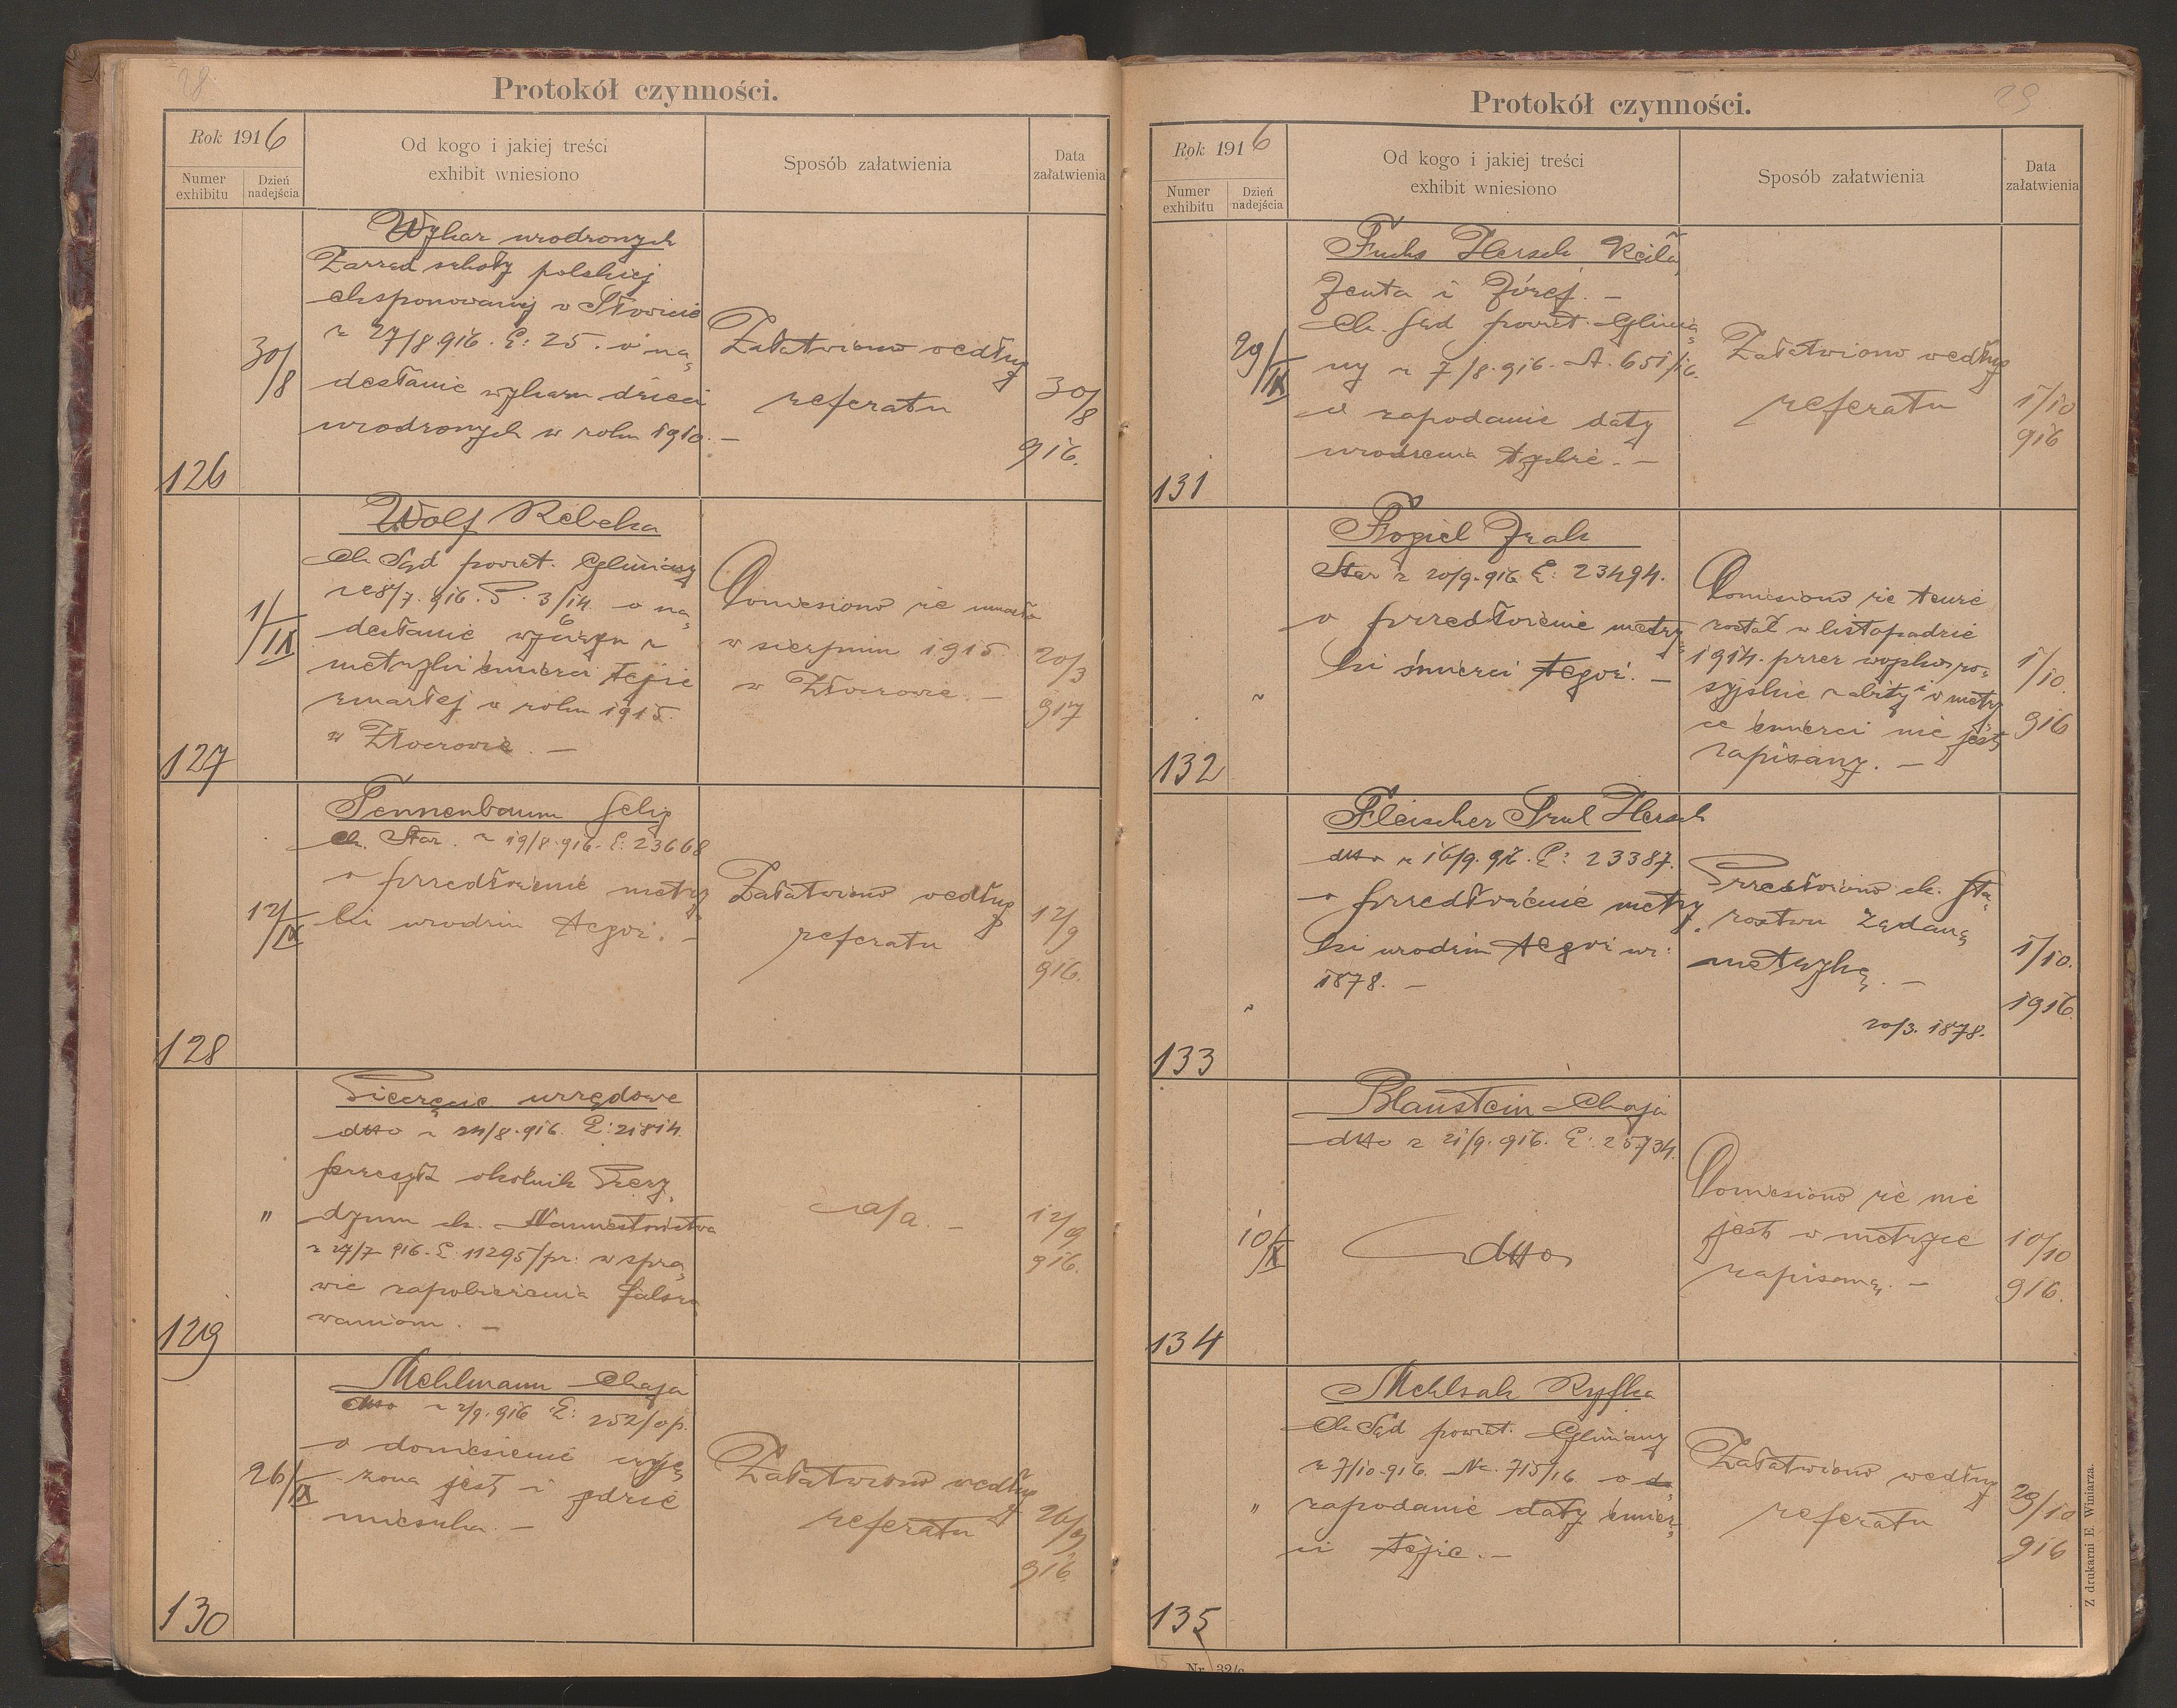 28
Protokół czynności.
Rok 1916
Numer exhibitu
Dzień nadejścia
Od kogo i jakiej treści
exhibit wniesiono
Sposób załatwienia
Data
załatwienia
126
30/8
Wykaz urodzonych
Zarząd szkoły polskiej
eksponowanej w Słowicie
z 27/8.916. L: 25. o na„
desłanie wykazu dzieci
urodzonych w roku 1910. —
Załatwiono według
referatu
30/8
916.
127
1/IX
Wolf Rebeka
Ck Sąd powiat. Gliniany
z 28/7. 916. P. 3/14. o na„
6
desłanie wyciągu z
metryki śmierci tejże
zmarłej w roku 1915.
w Złoczowie. —
Doniesiono że zmarła
w sierpniu 1915
w Złoczowie. —
20/3
917
128
12/IX
Tennenbaum Selig
Ck. Star. z 19/8.916. L: 23668
o przedłożenie metry„
ki urodzin tegoż. —
Załatwiono według
referatu
12/9
916.
129
"
Pieczęcie urzędowe
dtto z 24/8.916. L: 21814.
przesyła okolnik Prezy„
dyum ck. Namiestnictwa
z 27/7 916. L: 11295/pr: w spra„
wie zapobieżenia fałszo„
waniom. —
a/a. —
12/9
916.
130
26/IX
Mehlmann Chaja
dtto z 2/9.916 L: 252/op.
o doniesienie czyją
żoną jest i gdzie
mieszka. —
Załatwiono według
referatu
26/9
916.
29
Protokół czynności.
Rok 1916
Numer exhibitu
Dzień nadejścia
Od kogo i jakiej treści
exhibit wniesiono
Sposób załatwienia
Data
załatwienia
131
29/IX
Fuchs Hersch Reila,
Jenta i Józef. —
Ck. Sąd powiat. Glinia„
ny z 7/8.916. A. 651/16.
o zapodanie daty
urodzenia tychże. —
Załatwiono według
referatu
1/10
916
132
"
Fogiel Izak
Star z 20/9.916 L: 23494.
o przedłożenie metry„
ki śmierci tegoż. —
Doniesiono że tenże
został w listopadzie
1914. przez wojsko ro„
syjskie zabity i w metry„
ce śmierci nie jest
zapisany. —
1/10.
916
133
"
Fleischer Srul Hersch
dtto z 16/9.916. L: 23387.
o przedłożenie metry„
ki urodzin tegoż ur:
1878. —
Przedłożono ck. Sta„
rostwu żądaną
metrykę. —
20/3. 1878.
1/10.
1916.
134
10/X
Blaustein Chaja
dtto z 21/9.916. L: 25734.
dtto
Doniesiono że nie
jest w metryce
zapisaną. —
10/10
916.
135
"
Mehlsak Ryfka
Ck Sąd powiat. Gliniany
z 7/10.916. Nc. 715/16 o do„
zapodanie daty śmier„
ci tejże. —
Załatwiono według
referatu
29/10
916
Z drukarni E. Winiarza.